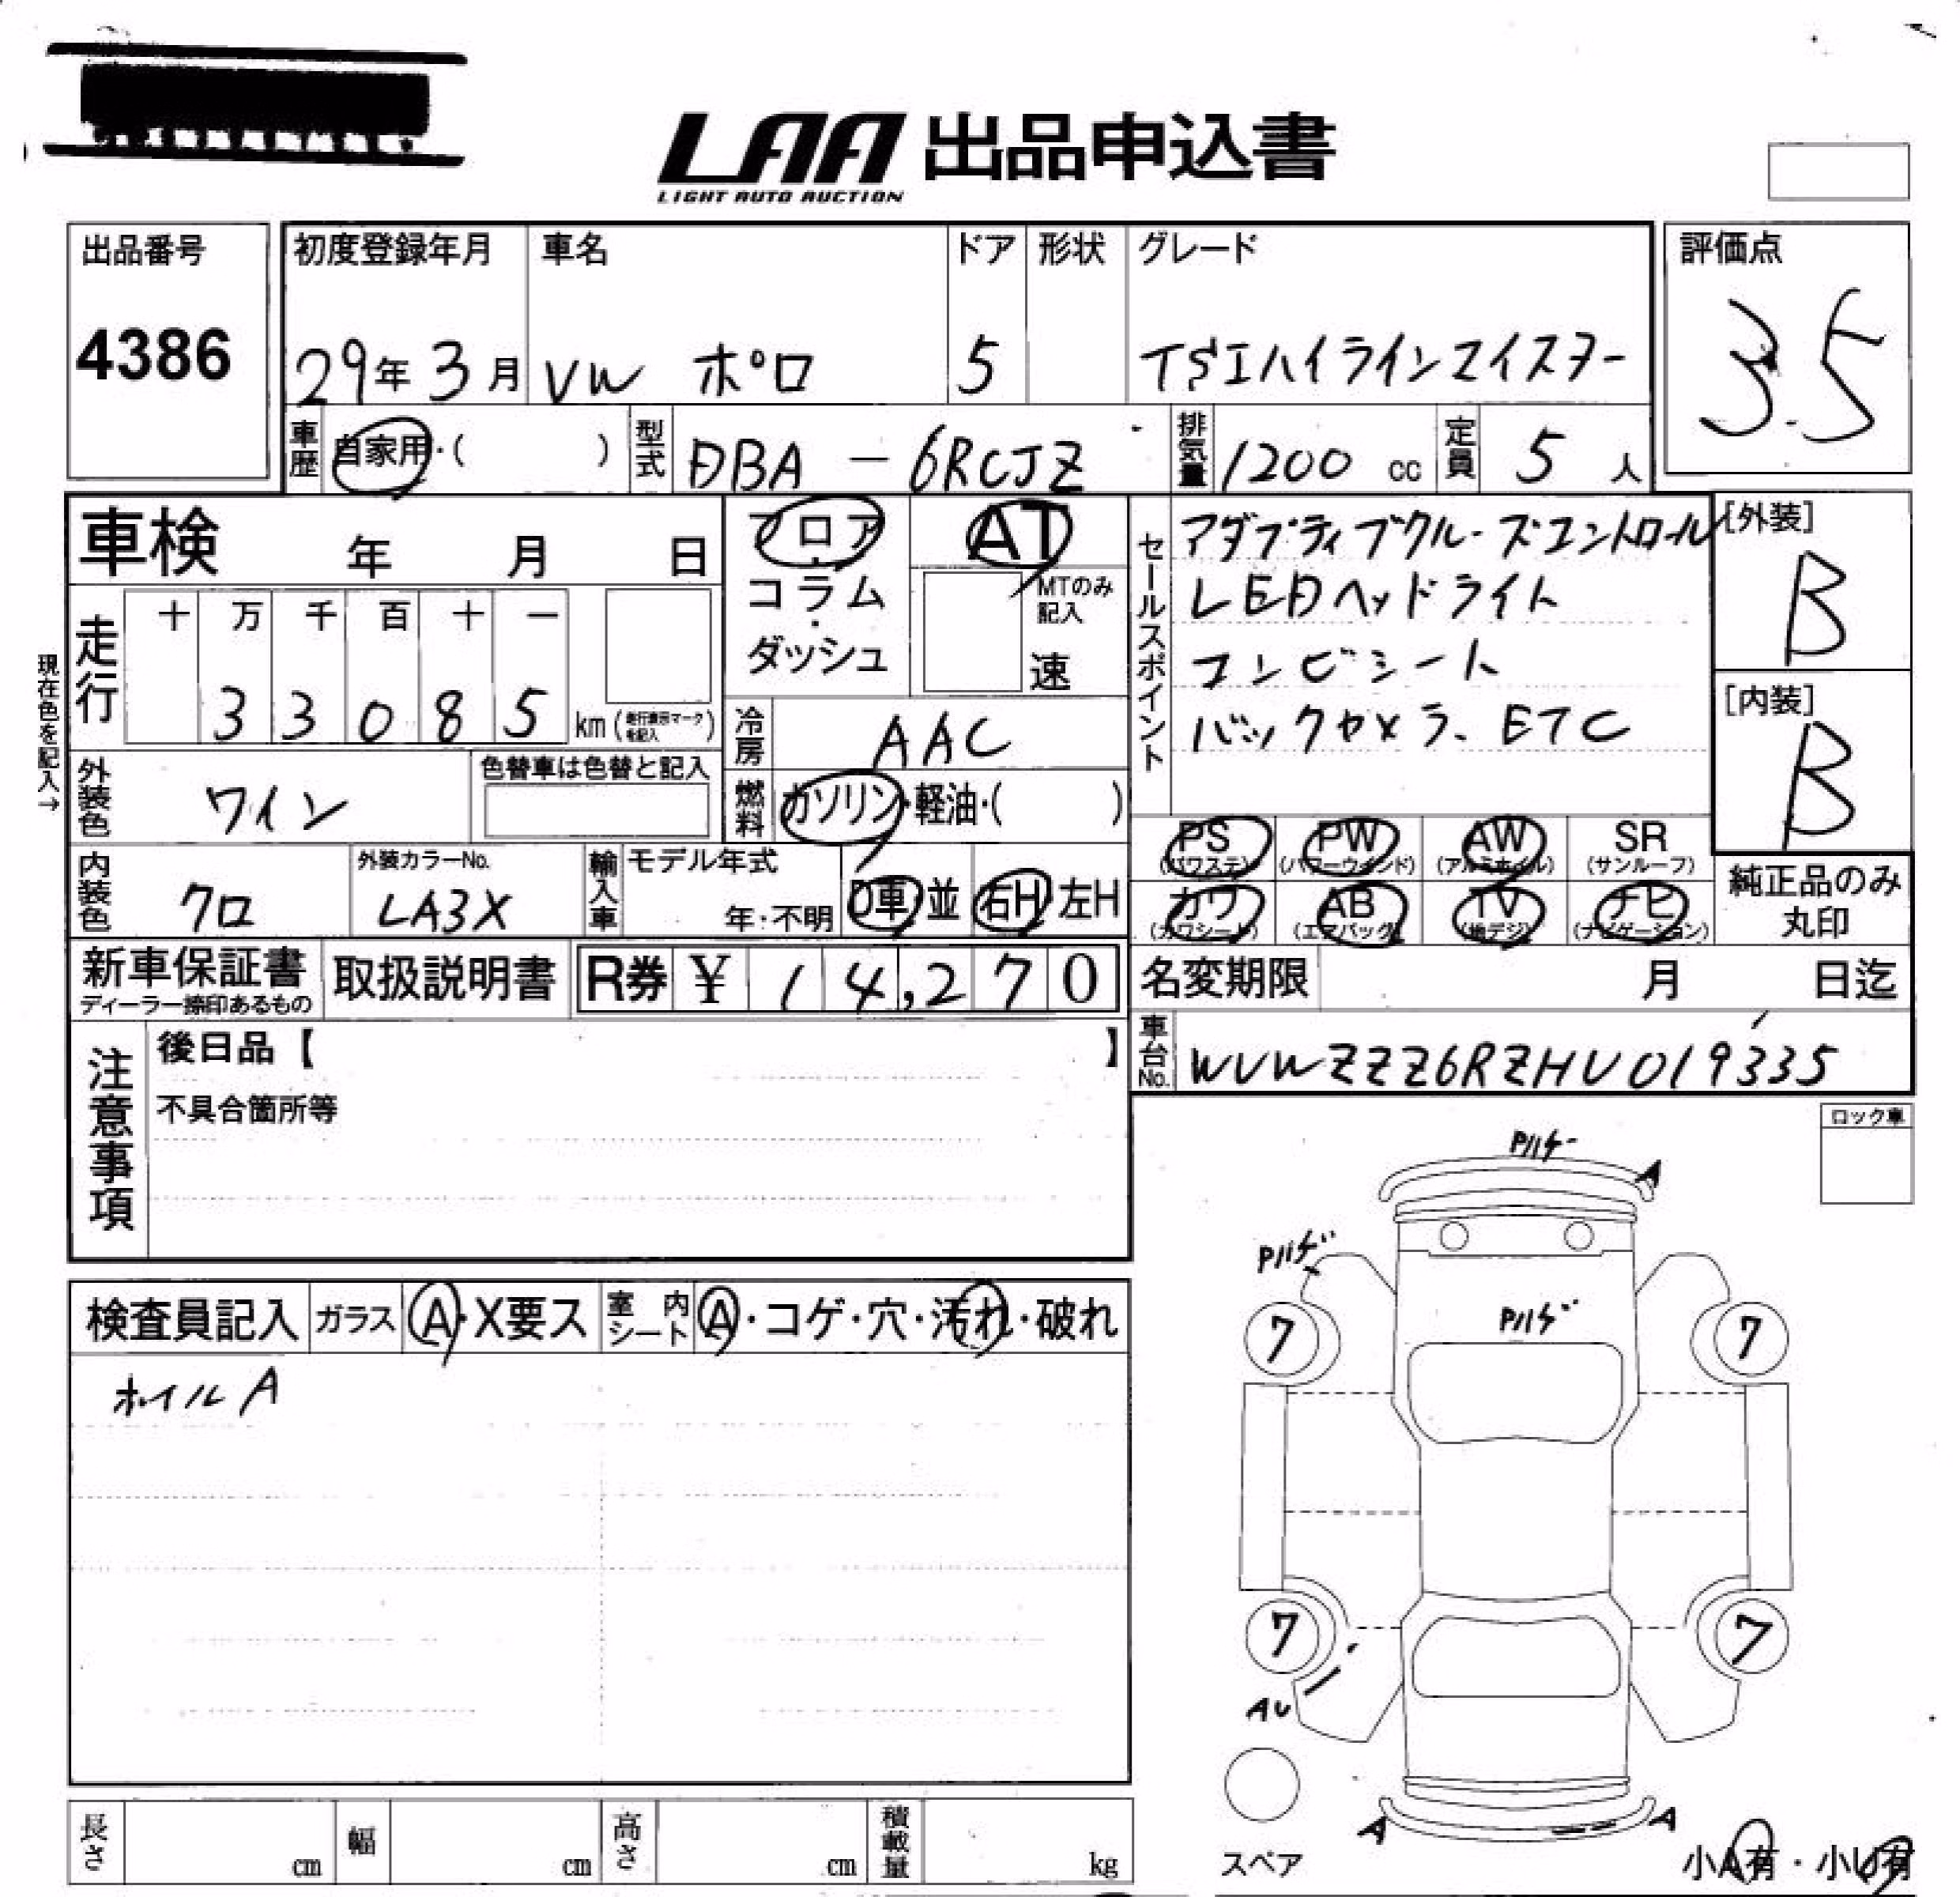 LAA 出品申込書
LIGHT AUTO AUCTION
出品番号
4386
初度登録年月
29年 3月
車名
VW ポロ
ドア
5
形状
グレード
TSIハイラインマイスター
評価点
3.5
車歴
自家用・( )
型式
DBA - 6RCJZ
排気量
1200 cc
定員
5 人
車検 年 月 日
現在色を記入→
走行
十 万 千 百 十 一
3 3 0 8 5 km (走行表示マークを記入)
フロア・コラム・ダッシュ
AT
MTのみ記入
速
冷房
AAC
燃料
ガソリン・軽油・( )
セールスポイント
アダプティブクルーズコントロール
LEDヘッドライト
コンビシート
バックカメラ、ETC
[外装]
B
[内装]
B
外装色
ワイン
色替車は色替と記入
内装色
クロ
外装カラーNo.
LA3X
輸入車
モデル年式
年・不明
D車 並
右H 左H
PS (パワステ)
PW (パワーウインド)
AW (アルミホイル)
SR (サンルーフ)
カワ (カワシート)
AB (エアバッグ)
TV (地デジ)
ナビ (ナビゲーション)
純正品のみ丸印
新車保証書
ディーラー捺印あるもの
取扱説明書
R券 ¥ 14,270
名変期限 月 日迄
車台No.
WVWZZZ6RZHU019335
注意事項
後日品【 】
不具合箇所等
ロック車
検査員記入
ガラス
A・X要ス
室内シート
A・コゲ・穴・汚れ・破れ
ホイルA
Pハゲ
A
Pハゲ
Pハゲ
7
7
7
7
AU
A
A
スペア
小A有・小U有
長さ cm
幅 cm
高さ cm
積載量 kg